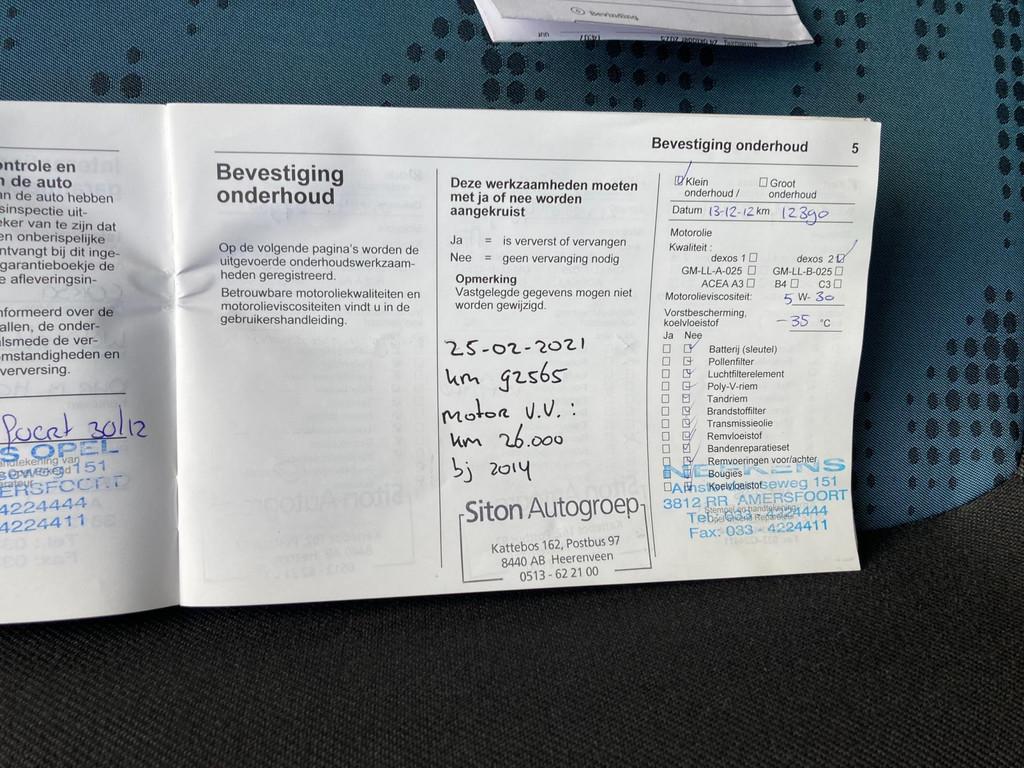 Bevinding
ontrole en
n de auto
an de auto hebben
sinspectie uit-
ker van te zijn dat
en onberispelijke
ntvangt bij dit inge-
garantieboekje de
e afleveringsin-
nformeerd over de
allen, de onder-
lsmede de ver-
mstandigheden en
verversing.
Poort 30/12
S OPEL
seweg 151
ERSFOORT
4224444
4224411
Bevestiging
onderhoud
Op de volgende pagina's worden de
uitgevoerde onderhoudswerkzaam-
heden geregistreerd.
Betrouwbare motoroliekwaliteiten en
motorolieviscositeiten vindt u in de
gebruikershandleiding.
Bevestiging onderhoud 5
Deze werkzaamheden moeten
met ja of nee worden
aangekruist
Ja = is ververst of vervangen
Nee = geen vervanging nodig
Opmerking
Vastgelegde gegevens mogen niet
worden gewijzigd.
25-02-2021
km 92565
motor V.V. :
km 26.000
bj 2014
Siton Autogroep
Kattebos 162, Postbus 97
8440 AB Heerenveen
0513 - 62 21 00
Klein onderhoud / Groot onderhoud
Datum 13-12-12 km 12390
Motorolie
Kwaliteit :
dexos 1 dexos 2
GM-LL-A-025 GM-LL-B-025
ACEA A3 B4 C3
Motorolieviscositeit: 5 W- 30
Vorstbescherming,
koelvloeistof -35 °C
Ja Nee
Batterij (sleutel)
Pollenfilter
Luchtfilterelement
Poly-V-riem
Tandriem
Brandstoffilter
Transmissieolie
Remvloeistof
Bandenreparatieset
Remvoeringen voor/achter
Bougies
Koelvloeistof
Stempel en handtekening
Opel Erkend Reparateur
NEFKENS
Amsterdamseweg 151
3812 RR AMERSFOORT
Tel: 033 - 4224444
Fax: 033 - 4224411